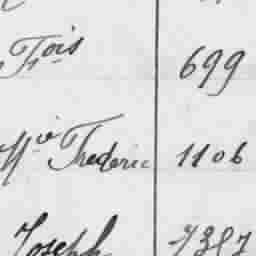 Fois 699
Mie Frederic 1106
Joseph 7387